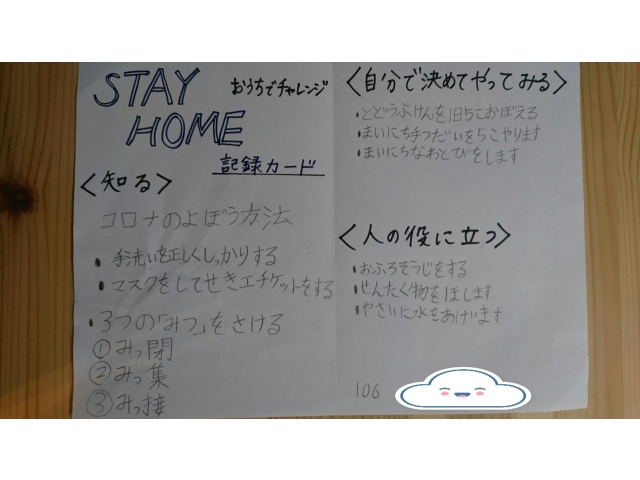 STAY
HOME
おうちでチャレンジ
記録カード
<知る>
コロナのよぼう方法
・手洗いを正しくしっかりする
・マスクをしてせきエチケットをする
・3つの「みつ」をさける
①みっ閉
②みっ集
③みっ接
<自分で決めてやってみる>
・とどうふけんを1日5こおぼえる
・まいにち手つだいを5こやります
・まいにちなわとびをします
<人の役に立つ>
・おふろそうじをする
・せんたく物をほします
・やさいに水をあげます
106